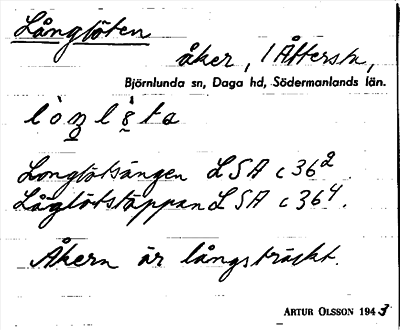 Långlöten
åker, i Åttersta,
Björnlunda sn, Daga hd, Södermanlands län.
Longlötsängen LSA c 36²
Låglötstäppan LSA c 36⁴.
Åkern är långsträckt.
ARTUR OLSSON 1943